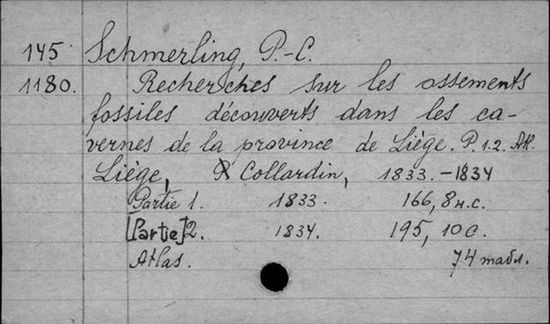 145 Schmerling, P.-C.
1180. Recherches sur les ossements
fossiles découverts dans les ca-
vernes de la province de Liège. P. 1.2. Atl.
Liège, P. Collardin, 1833.-1834
Partie 1. 1833. 166, 8 н.с.
[Partie] 2. 1834. 195, 10 с.
Atlas. 74 табл.